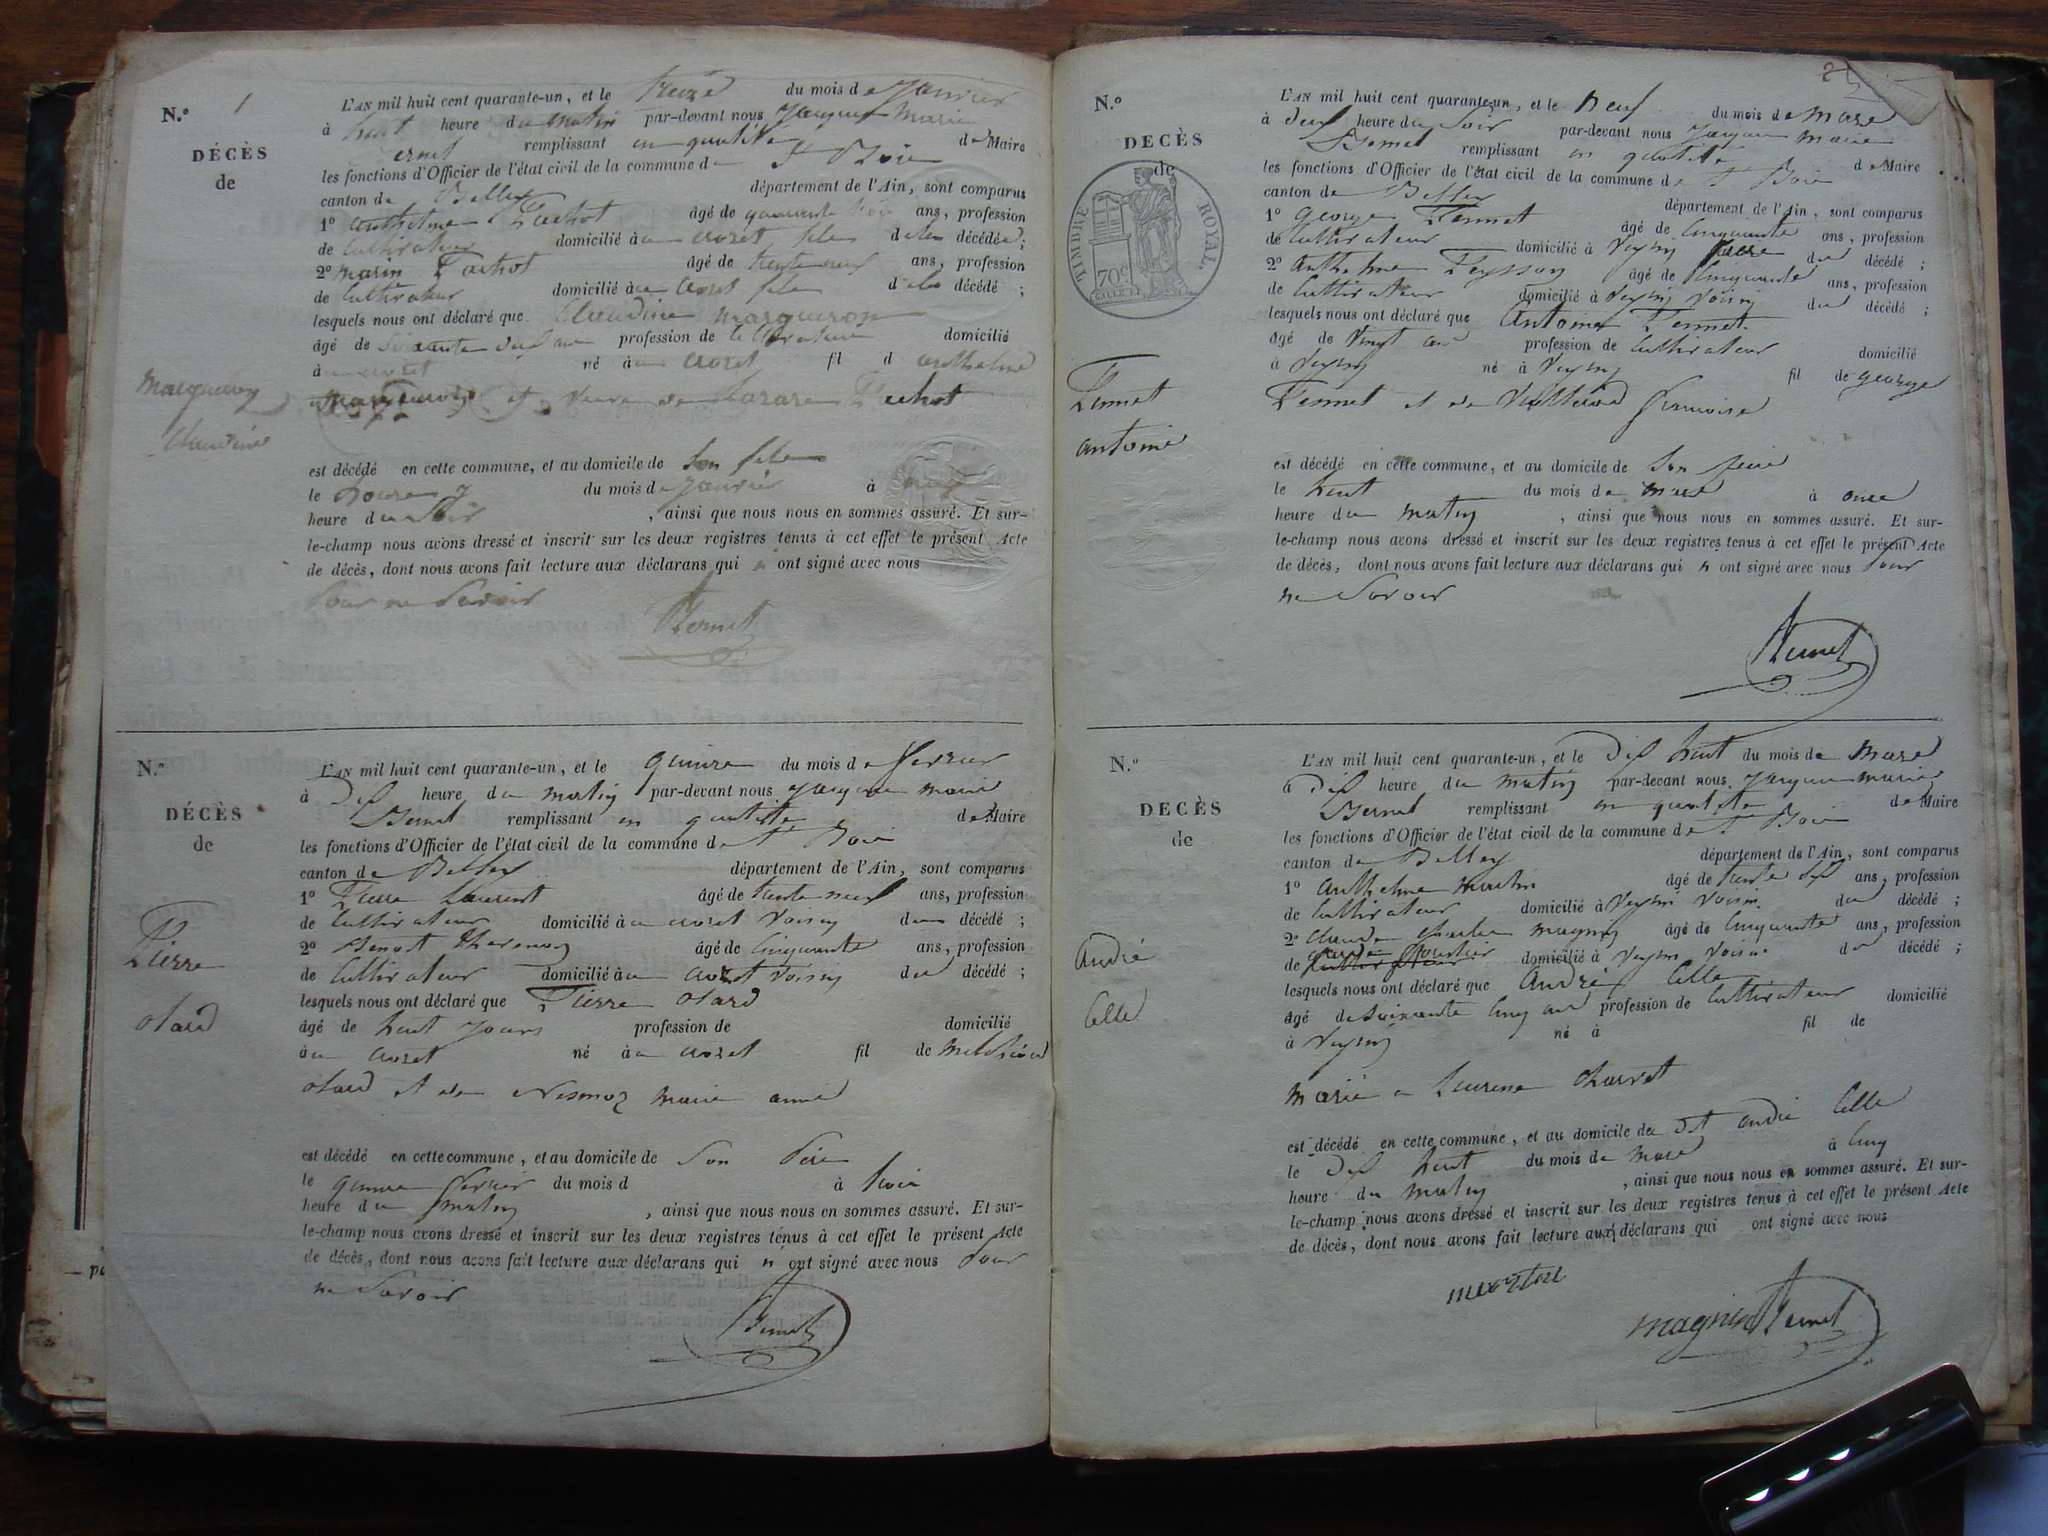 N.° 1
DÉCÈS
de
margueron
Claudine
L'AN mil huit cent quarante-un, et le treize du mois de Janvier
à huit heure du matin par-devant nous Jacques Marie
ernet remplissant en qualité de Maire
les fonctions d'Officier de l'état civil de la commune de St Bois
canton de Belley département de l'Ain, sont comparus
1° anthelme Pachot âgé de quarante trois ans, profession
de Cultivateur domicilié à au crozet fils de la décédée;
2° marin Pachot âgé de trente neuf ans, profession
de Cultivateur domicilié à au crozet fils de la décédé ;
lesquels nous ont déclaré que Claudine margueron
âgé de soixante profession de Cultivateur domicilié
à au crozet né à au crozet fil d anthelme
margueron et veuve de Lazare Pachot
est décédé en cette commune, et au domicile de Son fils
le douze du mois de Janvier à
heure du Soir , ainsi que nous nous en sommes assuré. Et sur-
le-champ nous avons dressé et inscrit sur les deux registres tenus à cet effet le présent Acte
de décès, dont nous avons fait lecture aux déclarans qui n ont signé avec nous
Pour ne Savoir
Bernet
N.°
DÉCÈS
de
Pierre
otard
L'AN mil huit cent quarante-un, et le quinze du mois de fevrier
à Dix heure du matin par-devant nous Jacques marie
Bernet remplissant en qualité de Maire
les fonctions d'Officier de l'état civil de la commune de St Bois
canton de Belley département de l'Ain, sont comparus
1° Pierre Laurent âgé de trente neuf ans, profession
de Cultivateur domicilié à au crozet Voisin du décédé ;
2° Benoit âgé de Cinquante ans, profession
de Cultivateur domicilié à au crozet Voisin du décédé ;
lesquels nous ont déclaré que Pierre otard
âgé de huit Jours profession de domicilié
à au crozet né à au crozet fil de
otard et de Nesmoz marie anne
est décédé en cette commune, et au domicile de Son Père
le quinze fevrier du mois d à trois
heure du matin , ainsi que nous nous en sommes assuré. Et sur-
le-champ nous avons dressé et inscrit sur les deux registres tenus à cet effet le présent Acte
de décès, dont nous avons fait lecture aux déclarans qui n ont signé avec nous Pour
ne Savoir
Bernet
2
N.°
DECÈS
de
TIMBRE ROYAL
70c
Pennet
antoine
L'AN mil huit cent quarante-un, et le neuf du mois de mars
à deux heure du Soir par-devant nous Jacques marie
Bernet remplissant en qualité de Maire
les fonctions d'Officier de l'état civil de la commune de St Bois
canton de Belley département de l'Ain, sont comparus
1° george Pennet âgé de Cinquante ans, profession
de Cultivateur domicilié à Veyrin Père du décédé ;
2° anthelme Peysson âgé de Cinquante ans, profession
de Cultivateur domicilié à Veyrin Voisin du décédé ;
lesquels nous ont déclaré que Antoine Pennet
âgé de vingt ans profession de Cultivateur domicilié
à Veyrin né à Veyrin fil de george
Pennet et de francoise
est décédé en cette commune, et au domicile de Son Père
le huit du mois de mars à onze
heure du matin , ainsi que nous nous en sommes assuré. Et sur-
le-champ nous avons dressé et inscrit sur les deux registres tenus à cet effet le présent Acte
de décès, dont nous avons fait lecture aux déclarans qui n ont signé avec nous Pour
ne Savoir
Bernet
N.°
DECÈS
de
André
Celle
L'AN mil huit cent quarante-un, et le Dix huit du mois de mars
à Dix heure du matin par-devant nous Jacques marie
Bernet remplissant en qualité de Maire
les fonctions d'Officier de l'état civil de la commune de St Bois
canton de Belley département de l'Ain, sont comparus
1° anthelme martin âgé de trente dix ans, profession
de Cultivateur domicilié à Veyrin Voisin du décédé ;
2° Claude Charles magnin âgé de Cinquante ans, profession
de garde forestier domicilié à Veyrin Voisin du décédé ;
lesquels nous ont déclaré que André Celle
âgé de Soixante Cinq ans profession de Cultivateur domicilié
à Veyrin né à fil de
marié a Laurene Charvet
est décédé en cette commune, et au domicile de dt andré Celle
le Dix huit du mois de mars à Cinq
heure du matin , ainsi que nous nous en sommes assuré. Et sur-
le-champ nous avons dressé et inscrit sur les deux registres tenus à cet effet le présent Acte
de décès, dont nous avons fait lecture aux déclarans qui ont signé avec nous
magnin Bernet